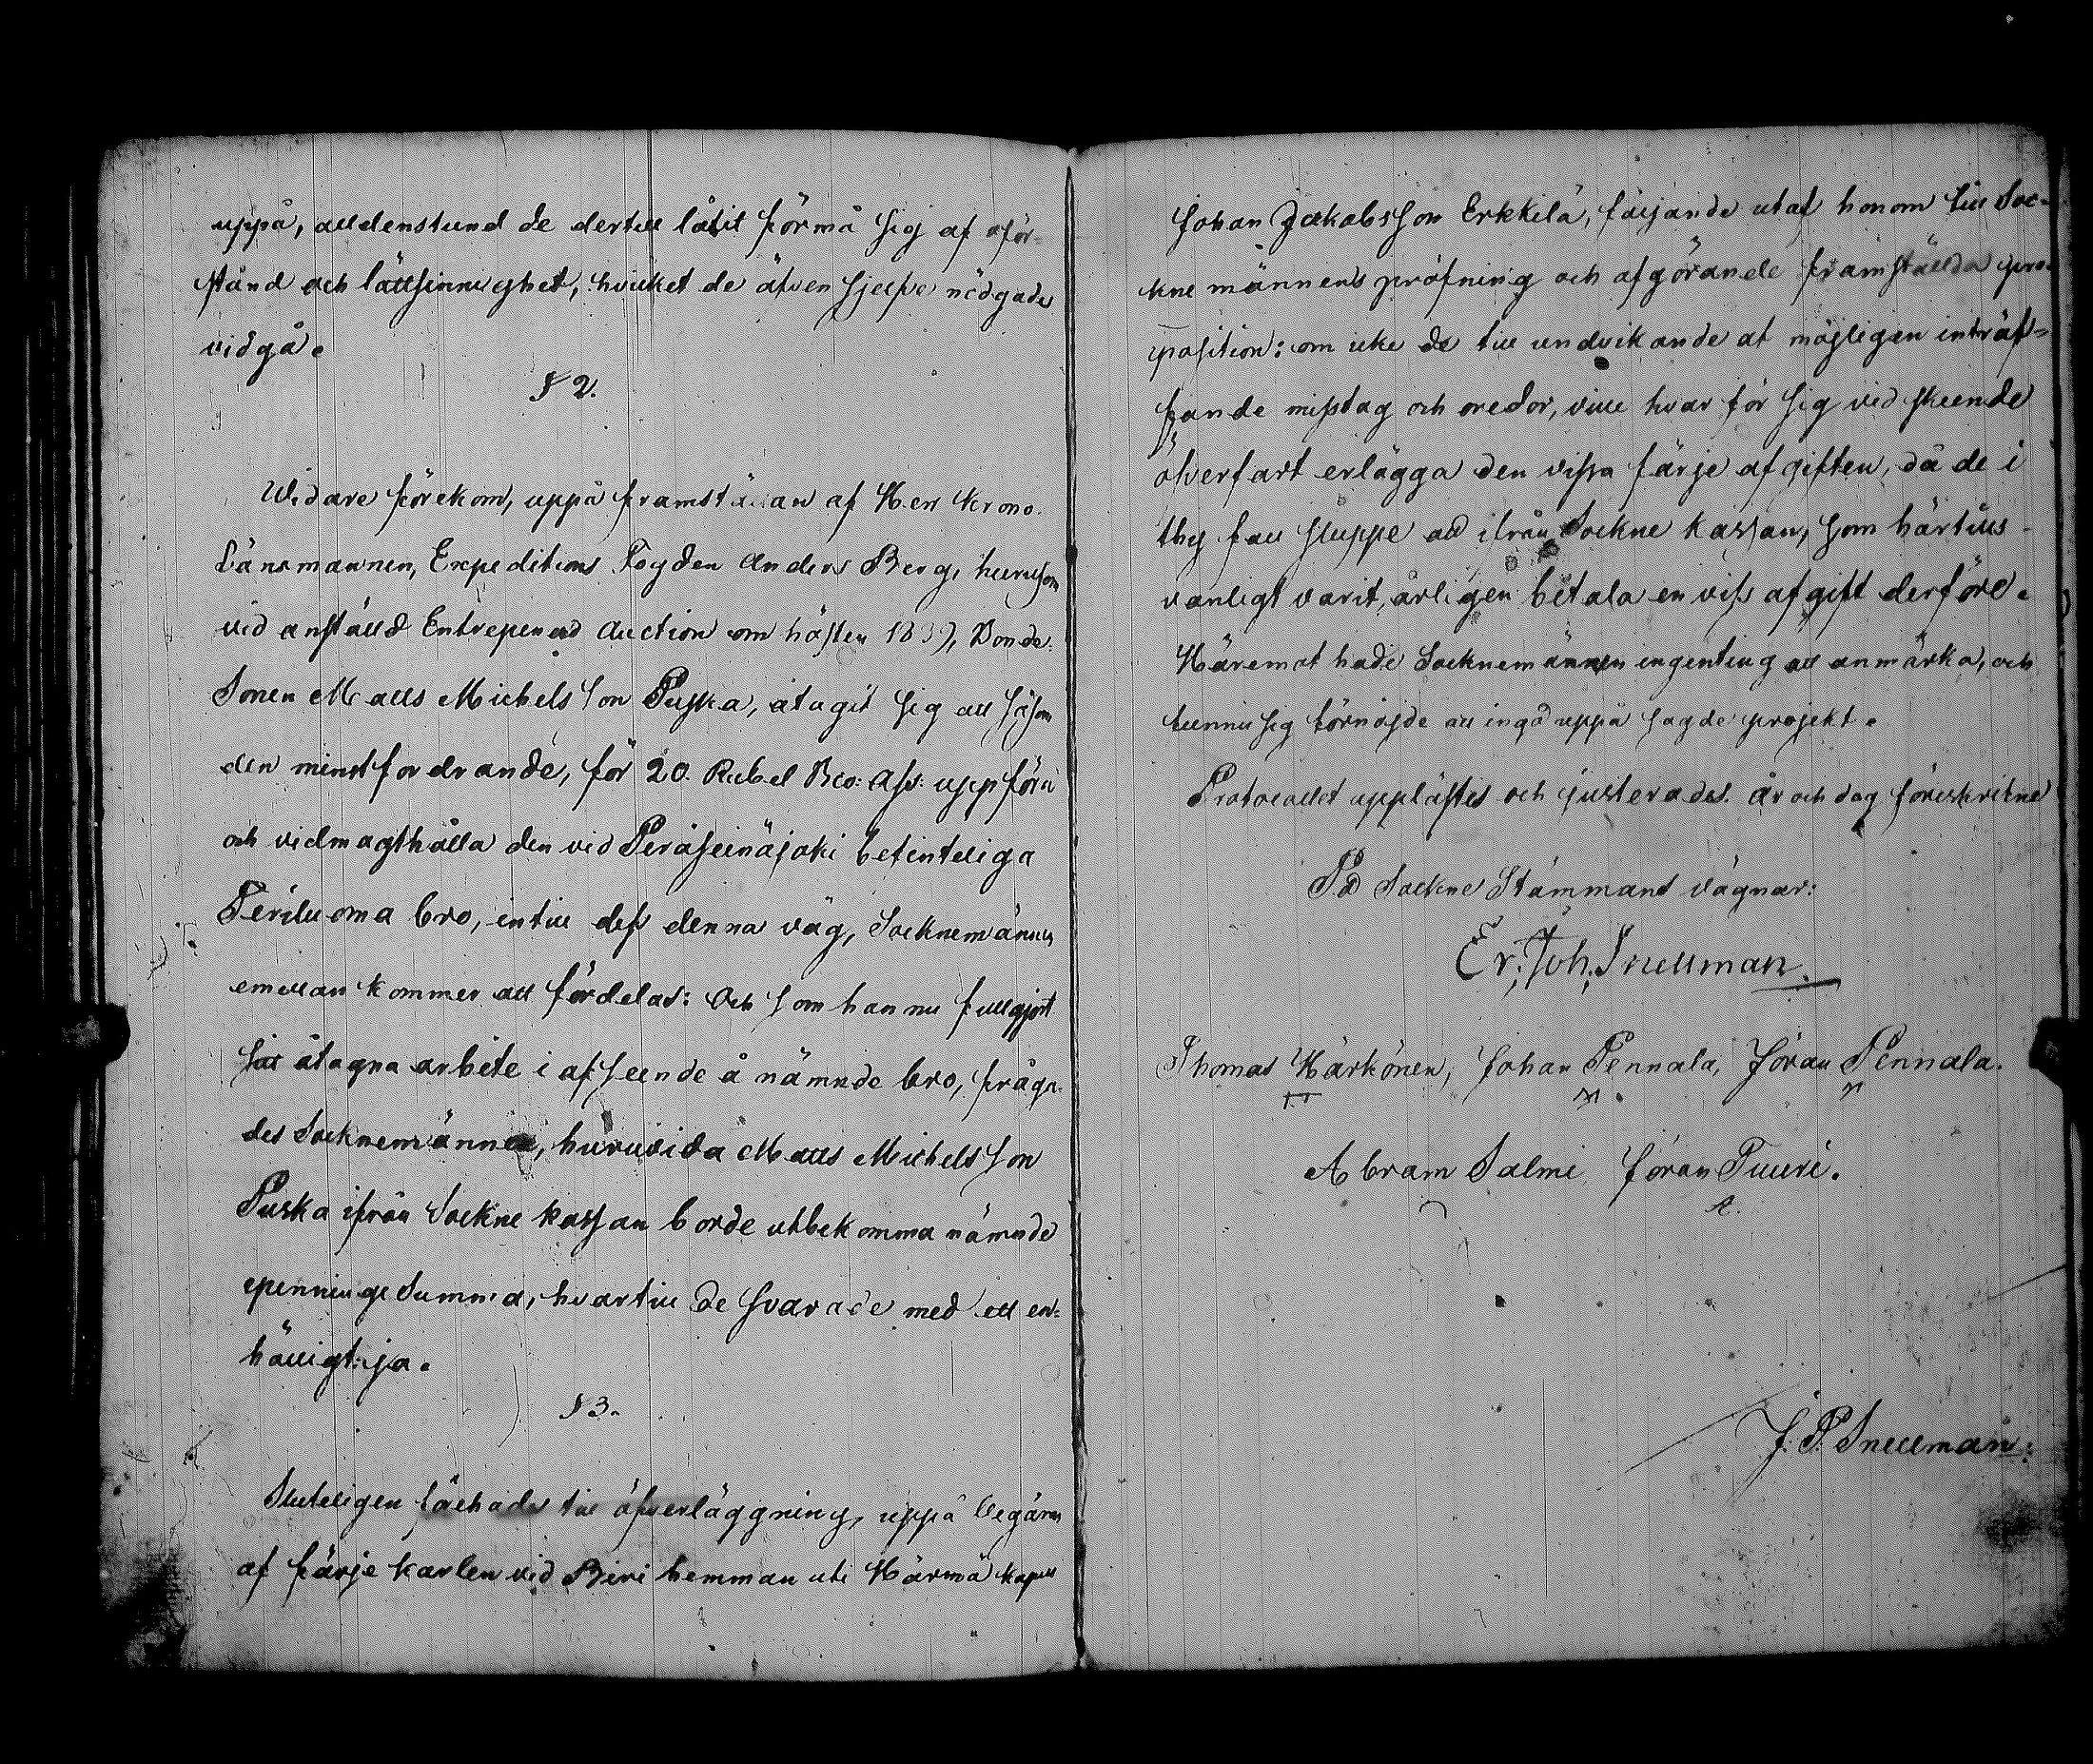 uppå, alldenstund de dertill låtit förmå sig af oför-
stånd och lättsinnighet, hvilket de äfven sjelfve nödgades
vidgå.
§ 2.
Widare förekom, uppå framställan af Herr Krono-
Länsmannen, Expeditions Fogden Anders Berg, huruson
vid anställd Entrepenad Auction om hösten 1839, Bonde-
Sonen Matts Michelsson Puska, åtagit sig att såsom
den minstfordrande, för 20. Rubel Bco: Ass: uppföra
och vidmagthålla den vid Peräseinäjoki befinteliga
Periluoma bro, intill dess denna väg, Socknemännen
emellan kommer att fördelas: Och som han nu fullgjort
sit åtagna arbete i afseende å nämnde bro, fråga-
des Socknemännen, huruvida Matts Michelsson
Puska ifrån Sockne kassan borde utbekomma nämnde
penninge Summa, hvartill de svarade med ett en-
hälligt: ja.
§ 3.
Sluteligen förehades till öfverläggning, uppå begäran
af färje karlen vid Biri hemman uti Härmä Kapell
Johan Jakobsson Erkkilä, följande utaf honom till Soc-
knemännens pröfning och afgörande framställda pro-
position: om icke de till undvikande af möjligen inträf-
fande misstag och oredor, ville hvar för sig vid skeende
öfverfart erlägga den vissa färje afgiften, då de i
thy fall sluppe att ifrån Sockne kassan, som härtills
vanligt varit, årligen betala en viss afgift derföre.
Häremot hade Socknemännen ingenting att anmärka, och
funno sig förnöjde att ingå uppå sagde projekt.
Protocollet upplästes och justerades. År och dag föreskrifne
På Sockne Stämmans vägnar:
Er. Joh. Snellman.
Thomas Härkönen, Johan Pennala, Jöran Pennala.
Abram Salmi Jöran Tuuri.
J. P. Snellman.